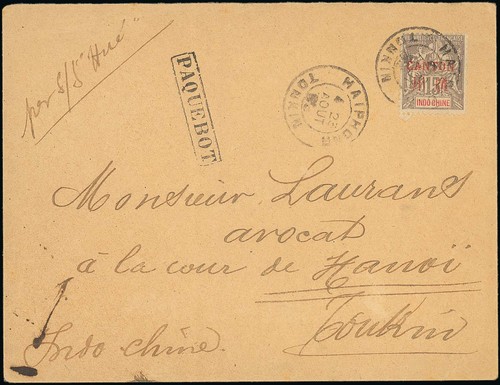 per S/S "Hué"
PAQUEBOT
HAIPHONG
4 25
AOUT
TONKIN
TONKIN
CANTON
INDO-CHINE
15
Monsieur Laurans
avocat
à la cour de Hanoï
Tonkin
Indo chine.